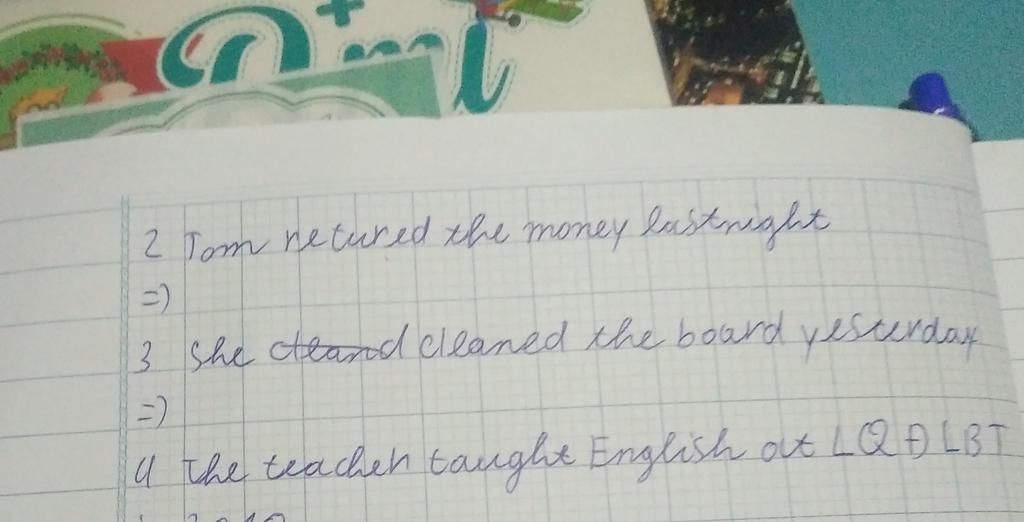 2 Tom retured the money lastnight
=)
3 She cleand cleaned the board yesterday
=)
4 The teacher taught English at LQĐ LBT